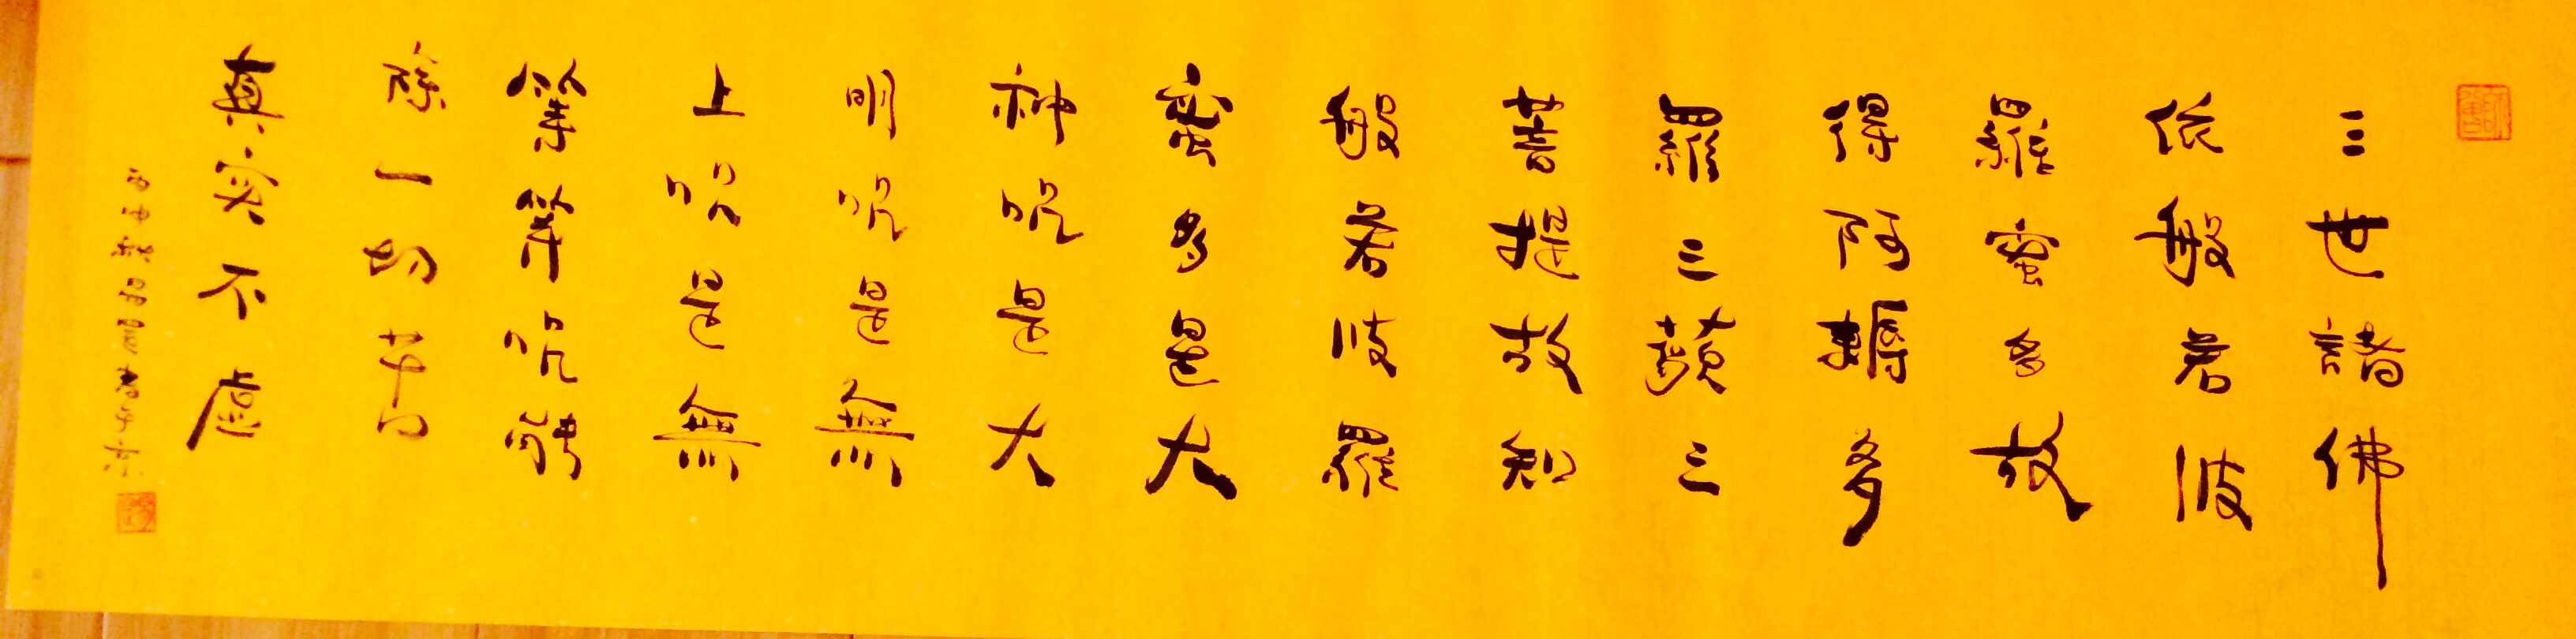 三世諸佛
依般若波
羅蜜多故
得阿耨多
羅三藐三
菩提故知
般若波羅
蜜多是大
神咒是大
明咒是無
上咒是無
等等咒能
除一切苦
真实不虛
丙申秋